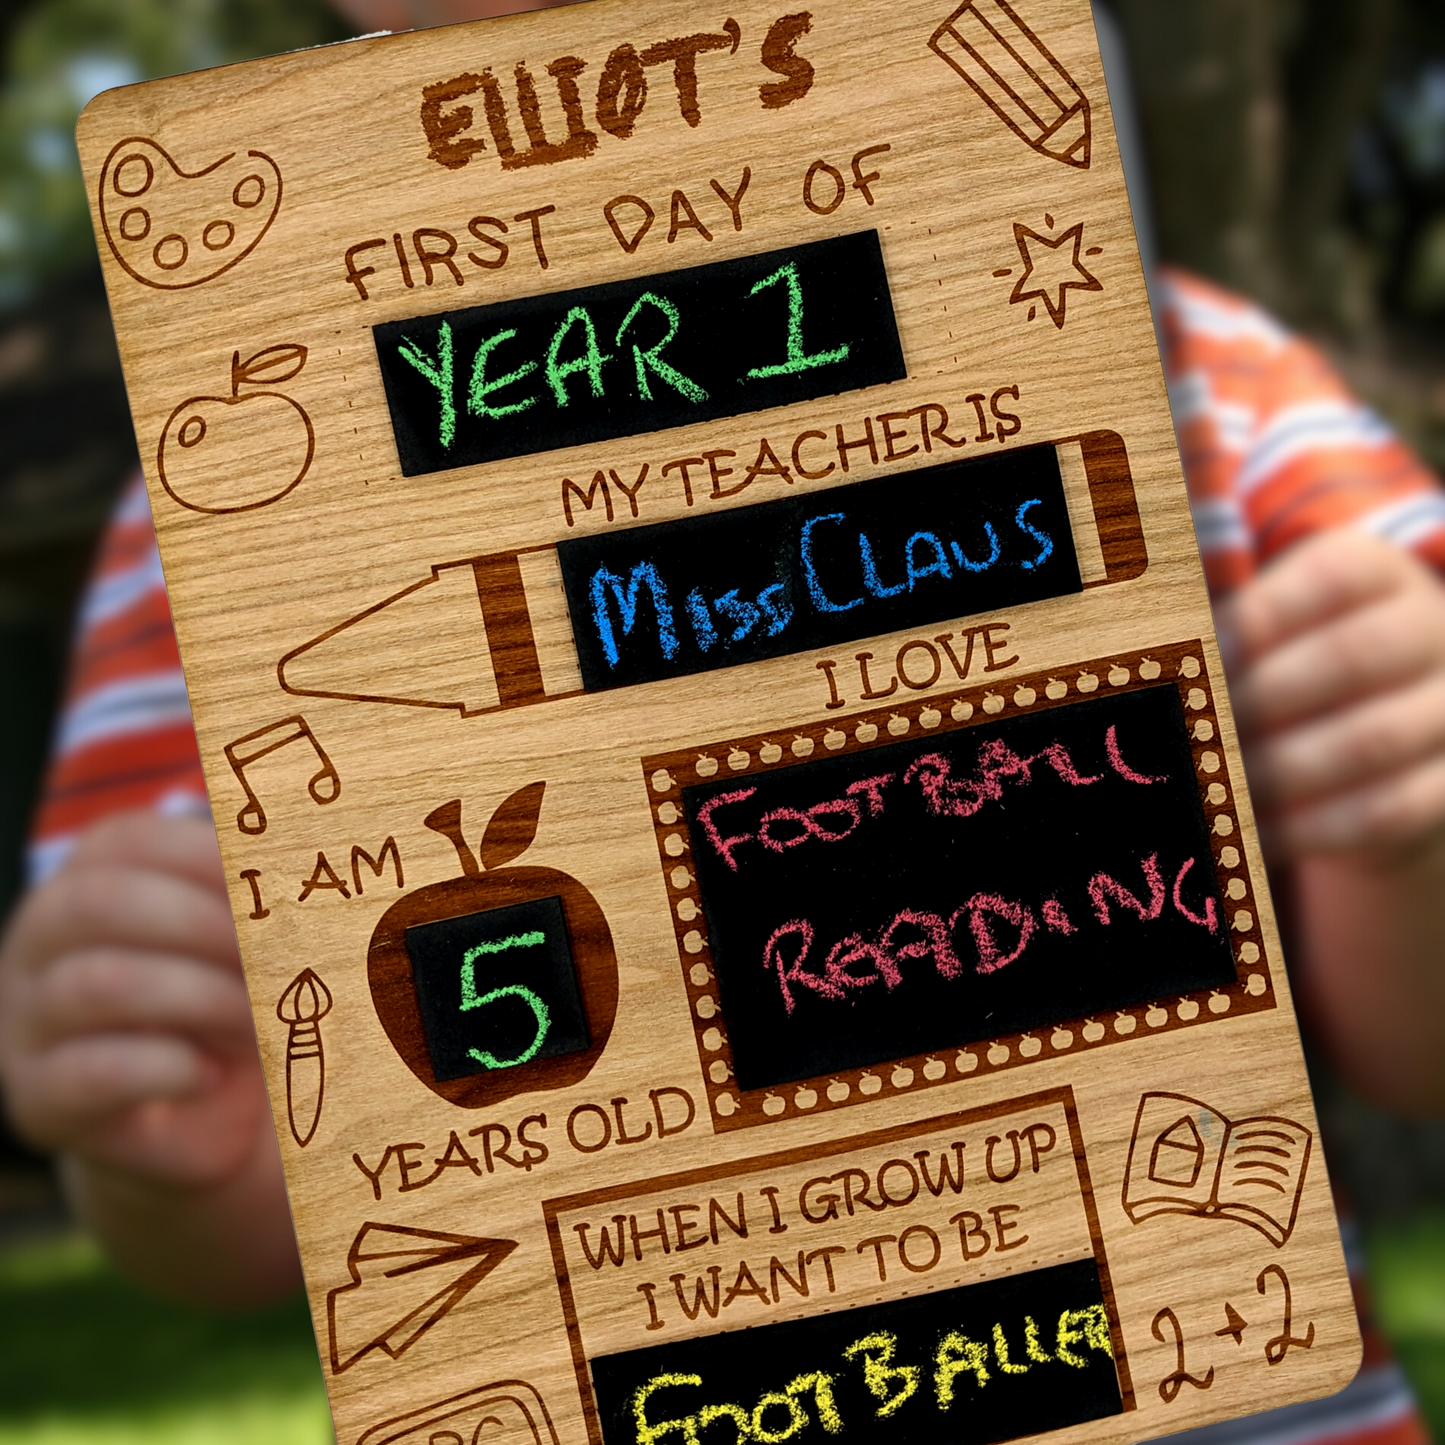 ELLIOT'S
FIRST DAY OF
YEAR 1
MY TEACHER IS
MISS CLAUS
I LOVE
FOOTBALL
READING
I AM
5
YEARS OLD
WHEN I GROW UP
I WANT TO BE
FOOTBALLER
2+2